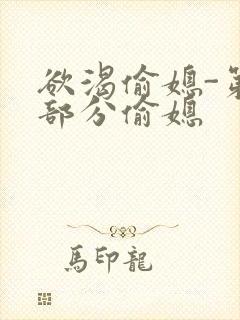 欲渴偷媳-第
部分偷媳
馬印龍